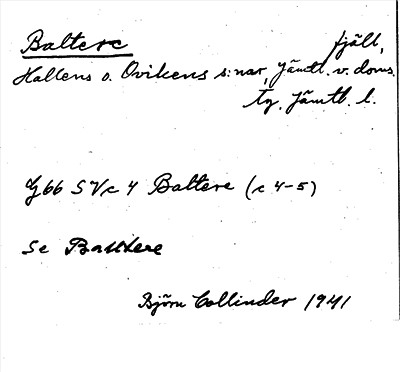 Baltere fjäll,
Hallens o. Ovikens s:nar, Jämtl. v. doms.
tg. Jämtl. l.
G66 SVc 4 Baltere (c 4-5)
Se Bauttere
Björn Collinder 1941